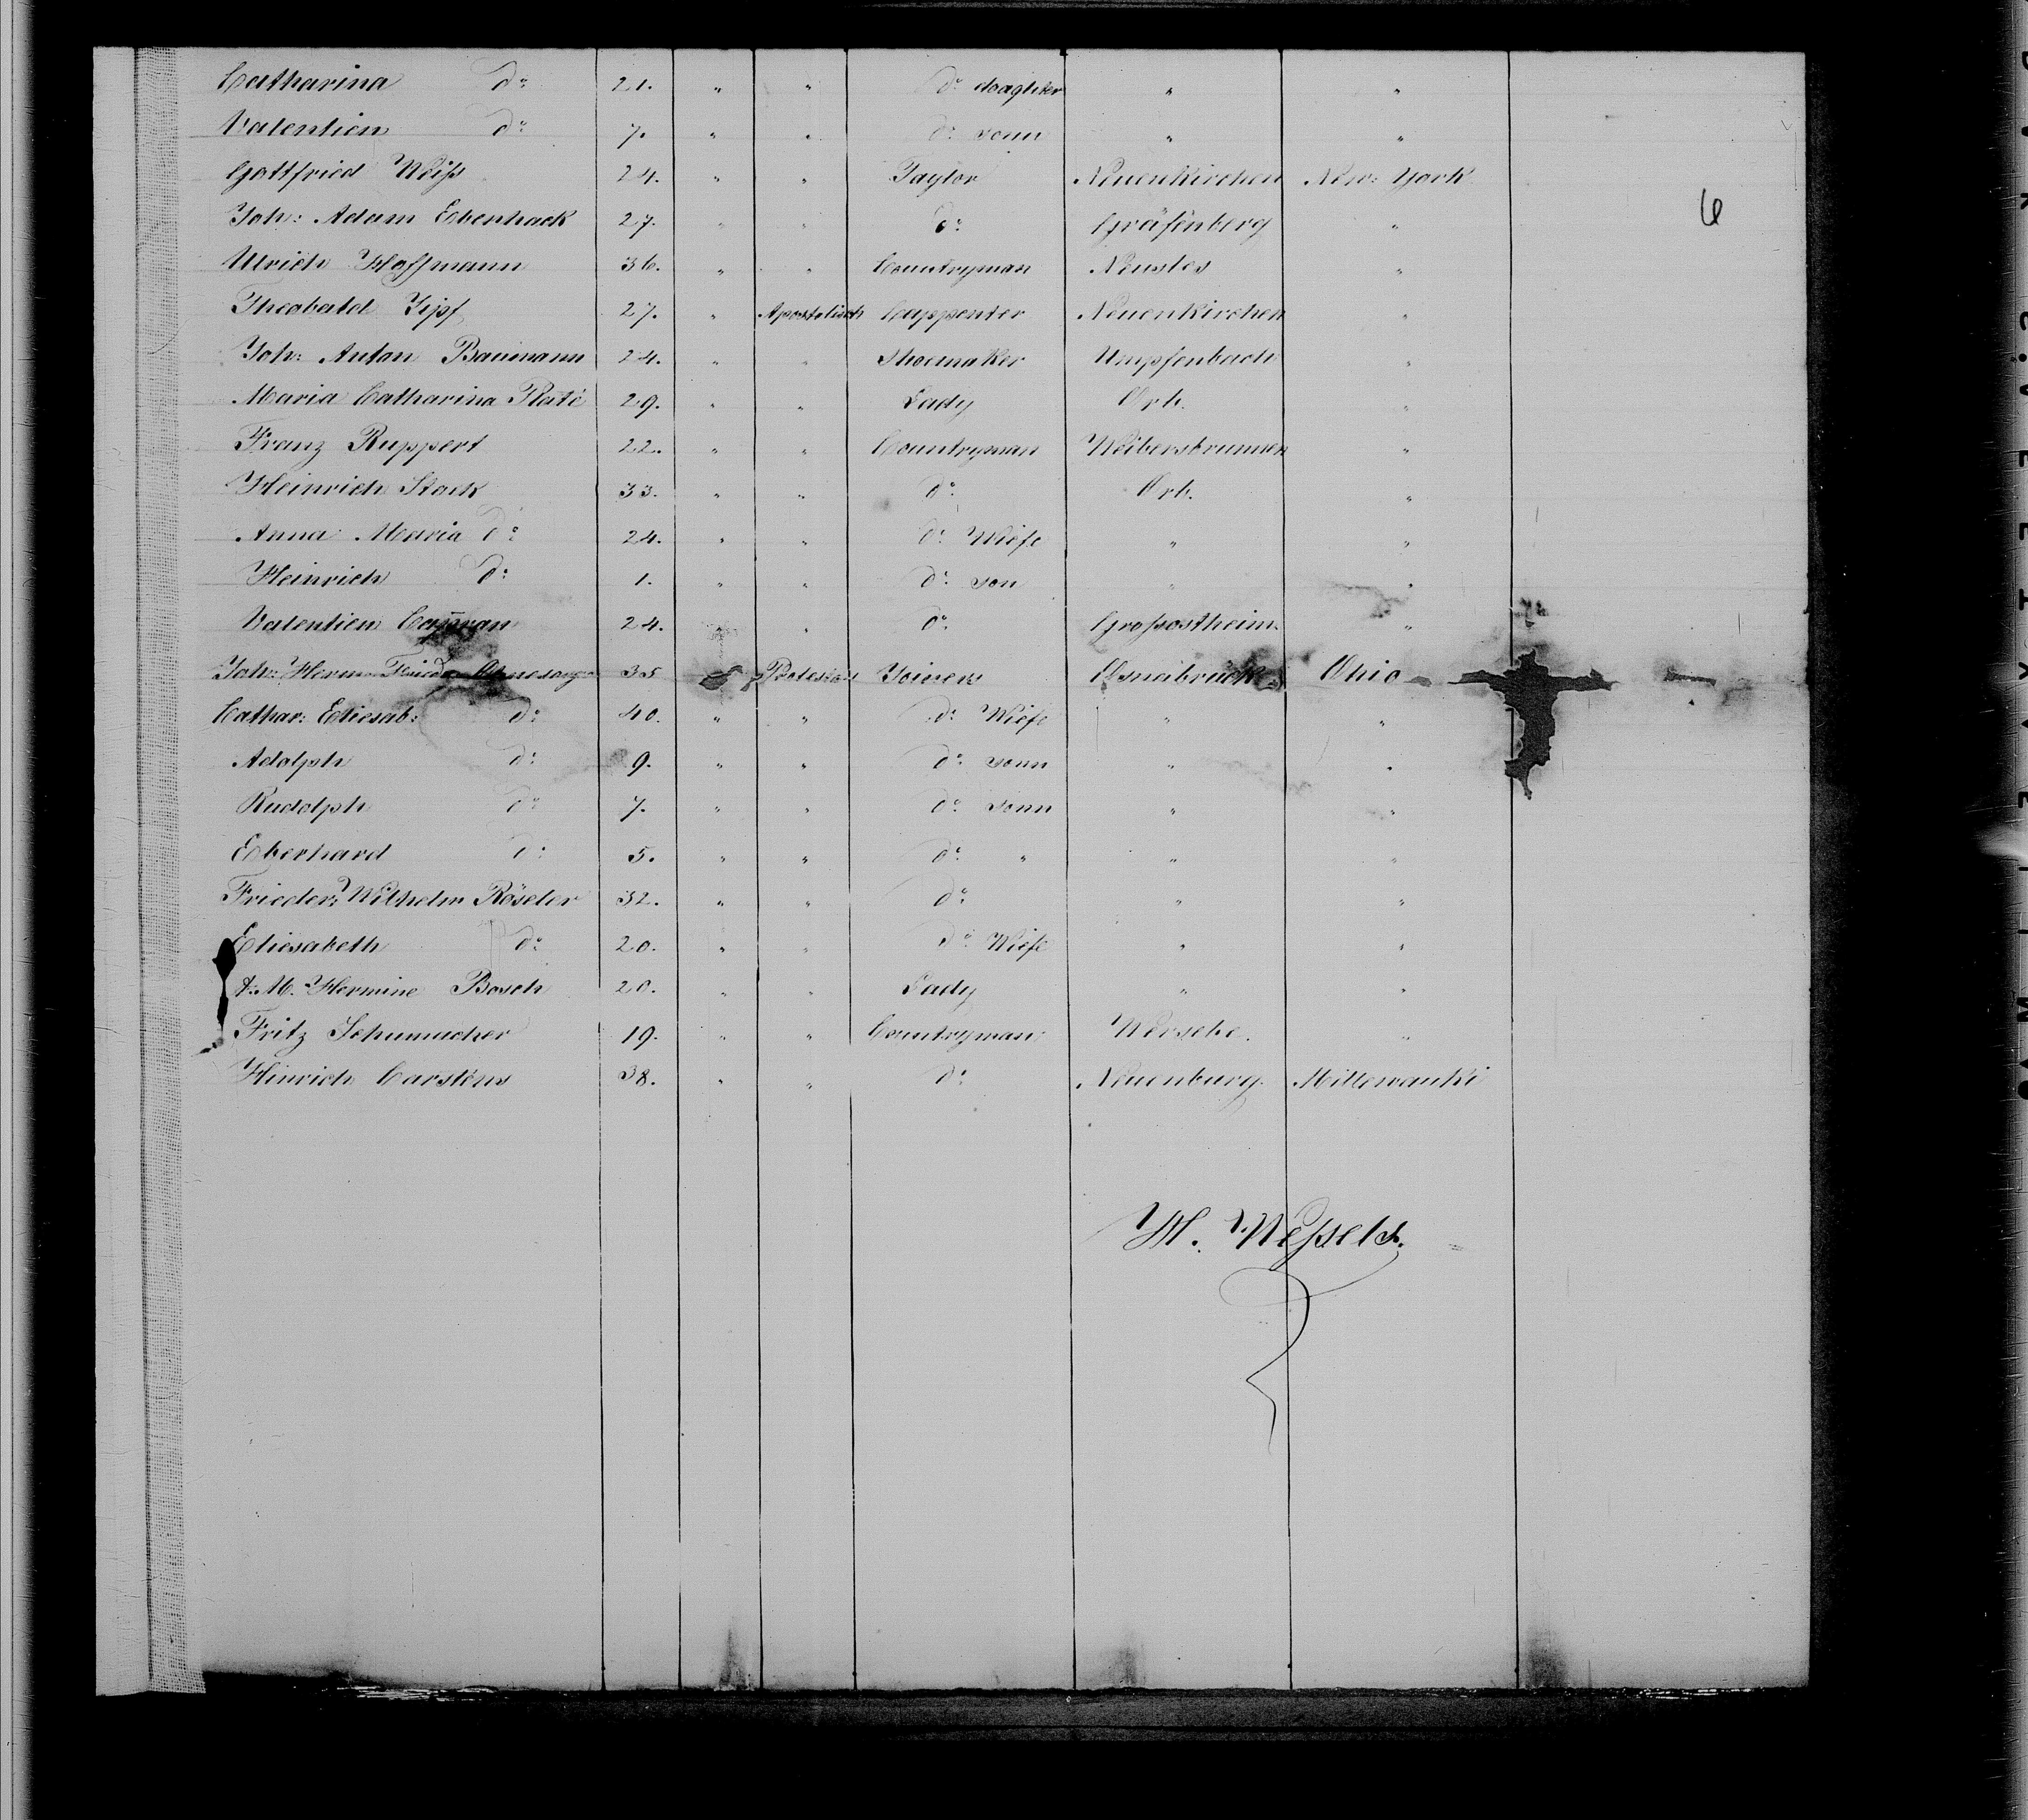 Catharina do 21. " " do daaghter " "
Valentien do 7. " " do sonn " "
Gottfried Weiſs 24. " " Taylor Neuenkirchen New: York
6
Joh: Adam Ebenhack 27. " " do Gräfenberg "
Ulrich Hoffmann 36. " " Countryman Neustes "
Theobald Zipf 27. " Apostolisch Cappenter Neuenkirchen "
Joh: Anton Baumann 24. " " Shoemaker Umpfenbach "
Maria Catharina Platé 29. " " Lady Orb. "
Franz Ruppert 22. " " Countryman Weibersbrunnen "
Heinrich Stock 33. " " do Orb. "
Anna Maria do 24. " " do Wiefe " "
Heinrich do 1. " " do son " "
Valentien 24. " " do Groſsostheim. "
Joh: Herm: Fried: 35 Protestan Joiner Osnabrück Ohio
Cathar: Eliesab: do 40. " " do Wiefe " "
Adolph do 9. " " do sonn " "
Rudolph do 7. " " do sonn " "
Eberhard do 5. " " do " " "
Frieder: Wilhelm Röseler 32. " " do " "
Eliesabeth do 20. " " do Wiefe " "
A. M. Hermine Bosch 20. " " Lady " "
Fritz Schumacher 19. " " Countryman Wersebe. "
Hinrich Carstens 38. " " do Neuenburg. Millewauki
H. Weſsels.